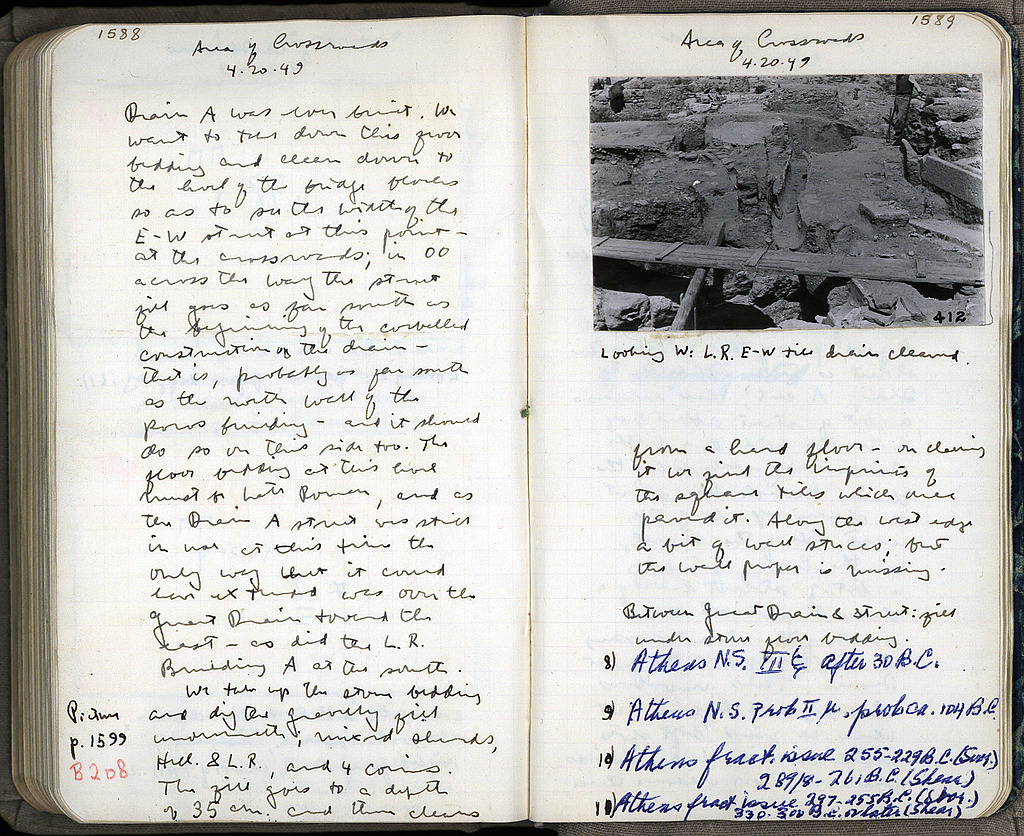 1588
Area of Crossroads
4.20.49
Drain A was ever built. We
want to take down this floor
bedding and clean down to
the level of the bridge blocks
so as to see the width of the
E-W street at this point –
at the crossroads; in OO
across the way the street
fill goes as far south as
the beginning of the corbelled
construction of the drain –
that is, probably as far south
as the north wall of the
poros building – and it should
do so on this side too. The
floor bedding at this level
must be late Roman, and as
the Drain A street was still
in use at this time the
only way that it could
have extended was over the
Great Drain toward the
east – as did the L.R.
Building A at the south.
We take up the stone bedding
and dig the gravelly fill
underneath; mixed sherds,
Hell. & L.R., and 4 coins.
The fill goes to a depth
of 35 cm. and then cleans
Picture
p. 1599
B208
1589
Area of Crossroads
4.20.49
412
Looking W: L.R. E-W tile drain cleared.
from a hard floor – on cleaning
it we find the imprints of
the square tiles which once
paved it. Along the west edge
a bit of wall stucco; but
the wall proper is missing.
Between Great Drain & Street: fill
under stone floor bedding.
8) Athens N.S. after 30 B.C.
9) Athens N.S. Prob II prob ca. 104 B.C.
10) Athens fract. issue 255-229 B.C. (Svor.)
289/8-261 B.C. (Shear)
11) Athens fract issue 297-255 B.C. (Svor.)
330-300 B.C. or later (Shear)